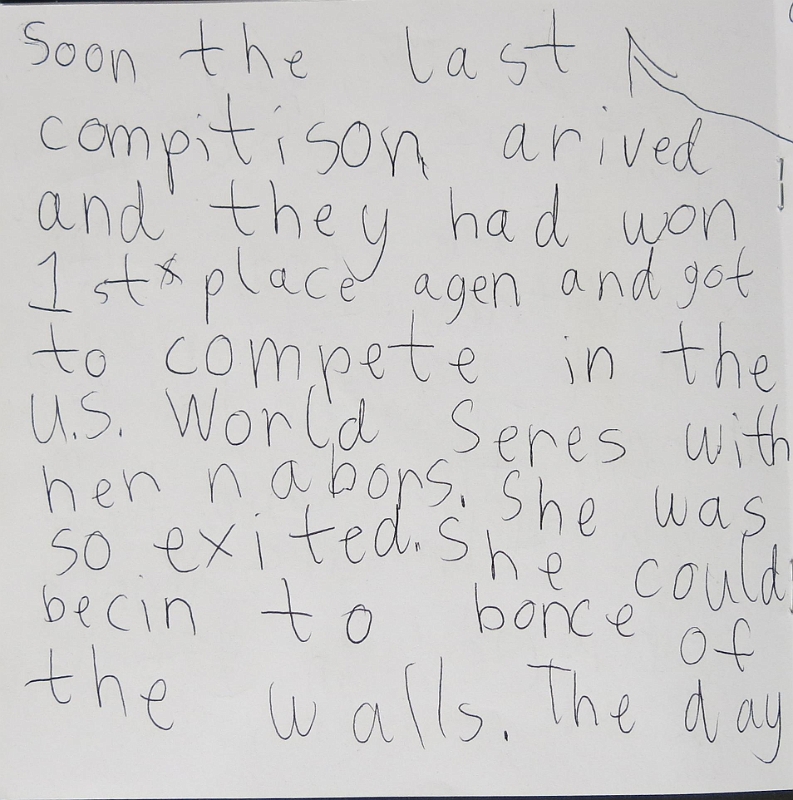 Soon the last
compitison arived
and they had won
1st* place agen and got
to compete in the
U.S. World Seres with
her nabors. She was
so exited. She could
becin to bonce of
the walls. The day